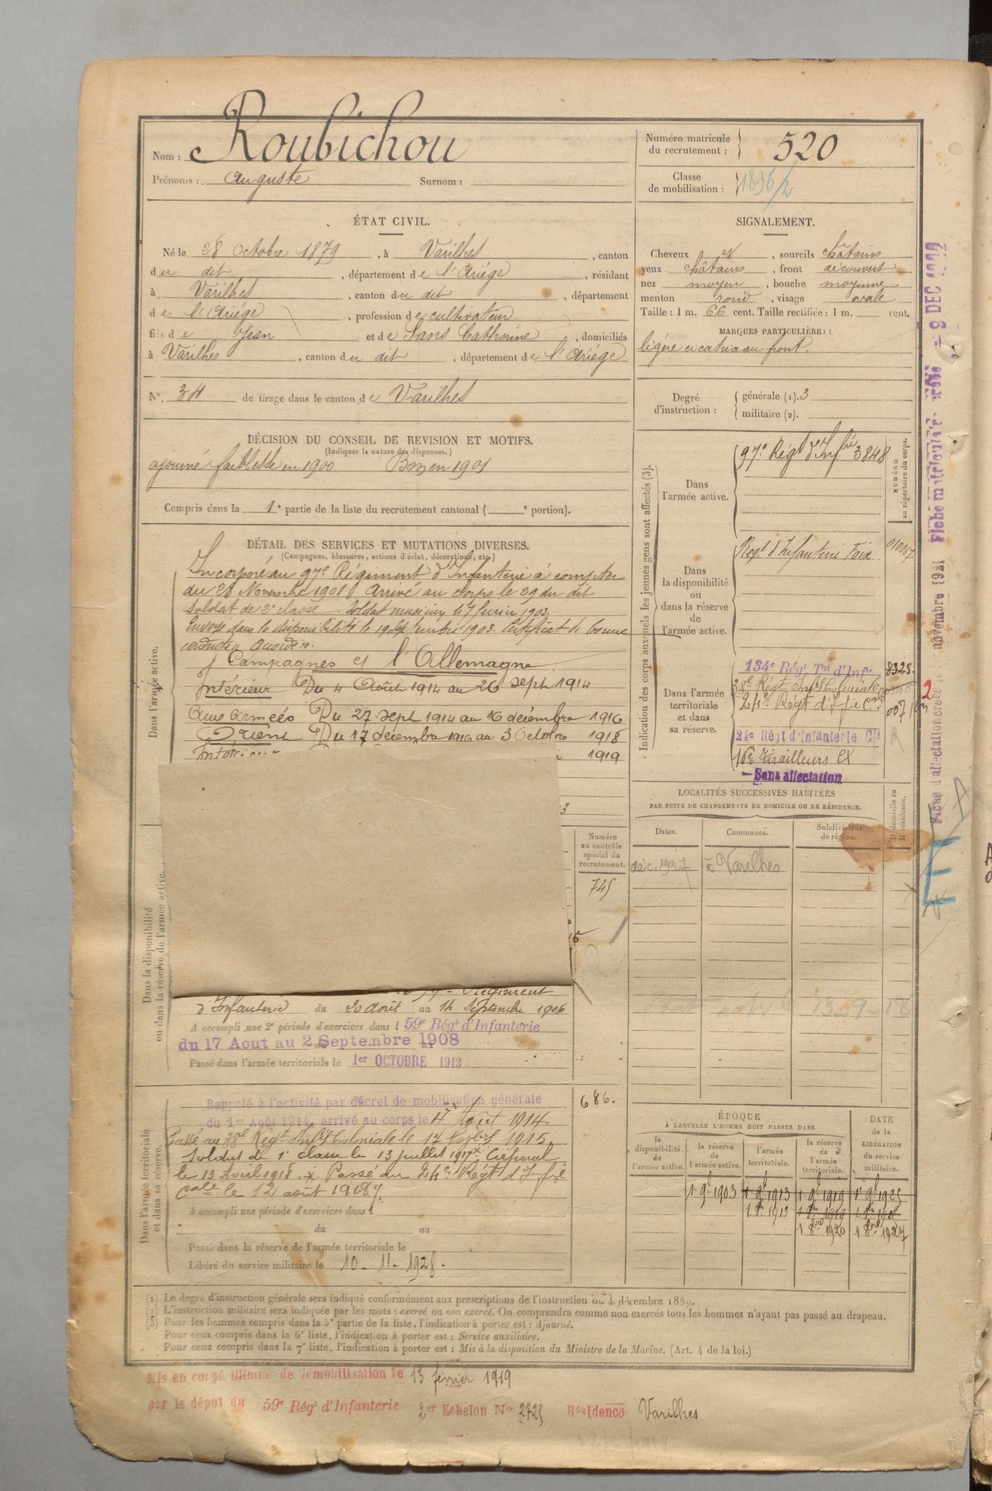 Nom : Roubichou
Prénoms : Auguste Surnom :
Numéro matricule du recrutement : 520
Classe de mobilisation : 1896/2
ÉTAT CIVIL.
Né le 28 Octobre 1879, à Varilhes, canton
du dit, département de l'Ariége, résidant
à Varilhes, canton du dit, département
de l'Ariége, profession de cultivateur
fils de Jean et de Sans Catherine, domiciliés
à Varilhes, canton du dit, département de l'Ariége
N° 34 de tirage dans le canton de Varilhes
DÉCISION DU CONSEIL DE REVISION ET MOTIFS.
(Indiquer la nature des dispenses.)
ajourné faiblesse en 1900 Bon en 1901
Compris dans la 1e partie de la liste du recrutement cantonal ( e portion).
SIGNALEMENT.
Cheveux et, sourcils châtains
yeux châtains, front découvert
nez moyen, bouche moyenne
menton rond, visage ovale
Taille : 1 m. 66 cent. Taille rectifiée : 1 m. cent.
MARQUES PARTICULIÈRES :
légère cicatrice au front.
Degré d'instruction : générale (1). 3
militaire (2).
DÉTAIL DES SERVICES ET MUTATIONS DIVERSES.
(Campagnes, blessures, actions d'éclat, décorations, etc.)
Dans l'armée active.
Incorporé au 97e Régiment d'Infanterie à compter
du 28 Novembre 1901 Arrivé au corps le 29 du dit
soldat de 2e classe Soldat musicien le 7 février 1903.
Envoyé dans la disponibilité le 19 Septembre 1903. Certificat de bonne
conduite accordé.
Campagnes et l'Allemagne
Intérieur Du 4 Août 1914 au 26 Sept 1914
Aux armées Du 27 Sept 1914 au 16 décembre 1916
Orient Du 17 décembre 1916 au 3 Octobre 1918
1919
Dans la disponibilité ou dans la réserve de l'armée active.
Numéro au contrôle spécial du recrutement.
745
Régiment
d'Infanterie du 20 août au 14 Septembre 1906
A accompli une 2e période d'exercices dans l 59e Régt d'Infanterie
du 17 Aout au 2 Septembre 1908
Passé dans l'armée territoriale le 1er OCTOBRE 1913
Dans l'armée territoriale et dans sa réserve.
Rappelé à l'activité par décret de mobilisation générale
du 1er août 1914, arrivé au corps le 4 Août 1914.
686.
Passé au 38e Régt Inftie Coloniale le 17
Soldat de 1e classe le 13 juillet 1917 Caporal
le 13 Avril 1918. Passé au 24e Régt d'Inf
cale le 12 août 1918
A accompli une période d'exercices dans l
du au
Passé dans la réserve de l'armée territoriale le
Libéré du service militaire le 10-11-1928.
Indication des corps auxquels les jeunes gens sont affectés (3).
NUMÉRO au répertoire du corps.
Dans l'armée active.
97e Régt d'Infie 3848
Dans la disponibilité ou dans la réserve de l'armée active.
Régt d'Infanterie Foix
Dans l'armée territoriale et dans sa réserve.
134e Régt Tal d'Inf. 8325
38e Régt Inftie Coloniale
24e Régt d'Inf Cale
21e Régt d'Infanterie Cle
16e Tirailleurs
Sans affectation
LOCALITÉS SUCCESSIVES HABITÉES
PAR SUITE DE CHANGEMENTS DE DOMICILE OU DE RÉSIDENCE.
Dates. Communes. Subdivision de région.
déc. 1927 à Varilhes
ÉPOQUE
À LAQUELLE L'HOMME DOIT PASSER DANS
la disponibilité de l'armée active.
la réserve de l'armée active.
l'armée territoriale.
la réserve de l'armée territoriale.
DATE de la LIBÉRATION du service militaire.
(1) Le degré d'instruction générale sera indiqué conformément aux prescriptions de l'instruction du 4 décembre 1889.
(2) L'instruction militaire sera indiquée par les mots : exercé ou non exercé. On comprendra comme non exercés tous les hommes n'ayant pas passé au drapeau.
(3) Pour les hommes compris dans la 5e partie de la liste, l'indication à porter est : Ajourné.
Pour ceux compris dans la 6e liste, l'indication à porter est : Service auxiliaire.
Pour ceux compris dans la 7e liste, l'indication à porter est : Mis à la disposition du Ministre de la Marine. (Art. 4 de la loi.)
Mis en congé illimité de démobilisation le 13 février 1919
par le dépôt du 59e Régt d'Infanterie 2er Echelon No 2725 Résidence Varilhes